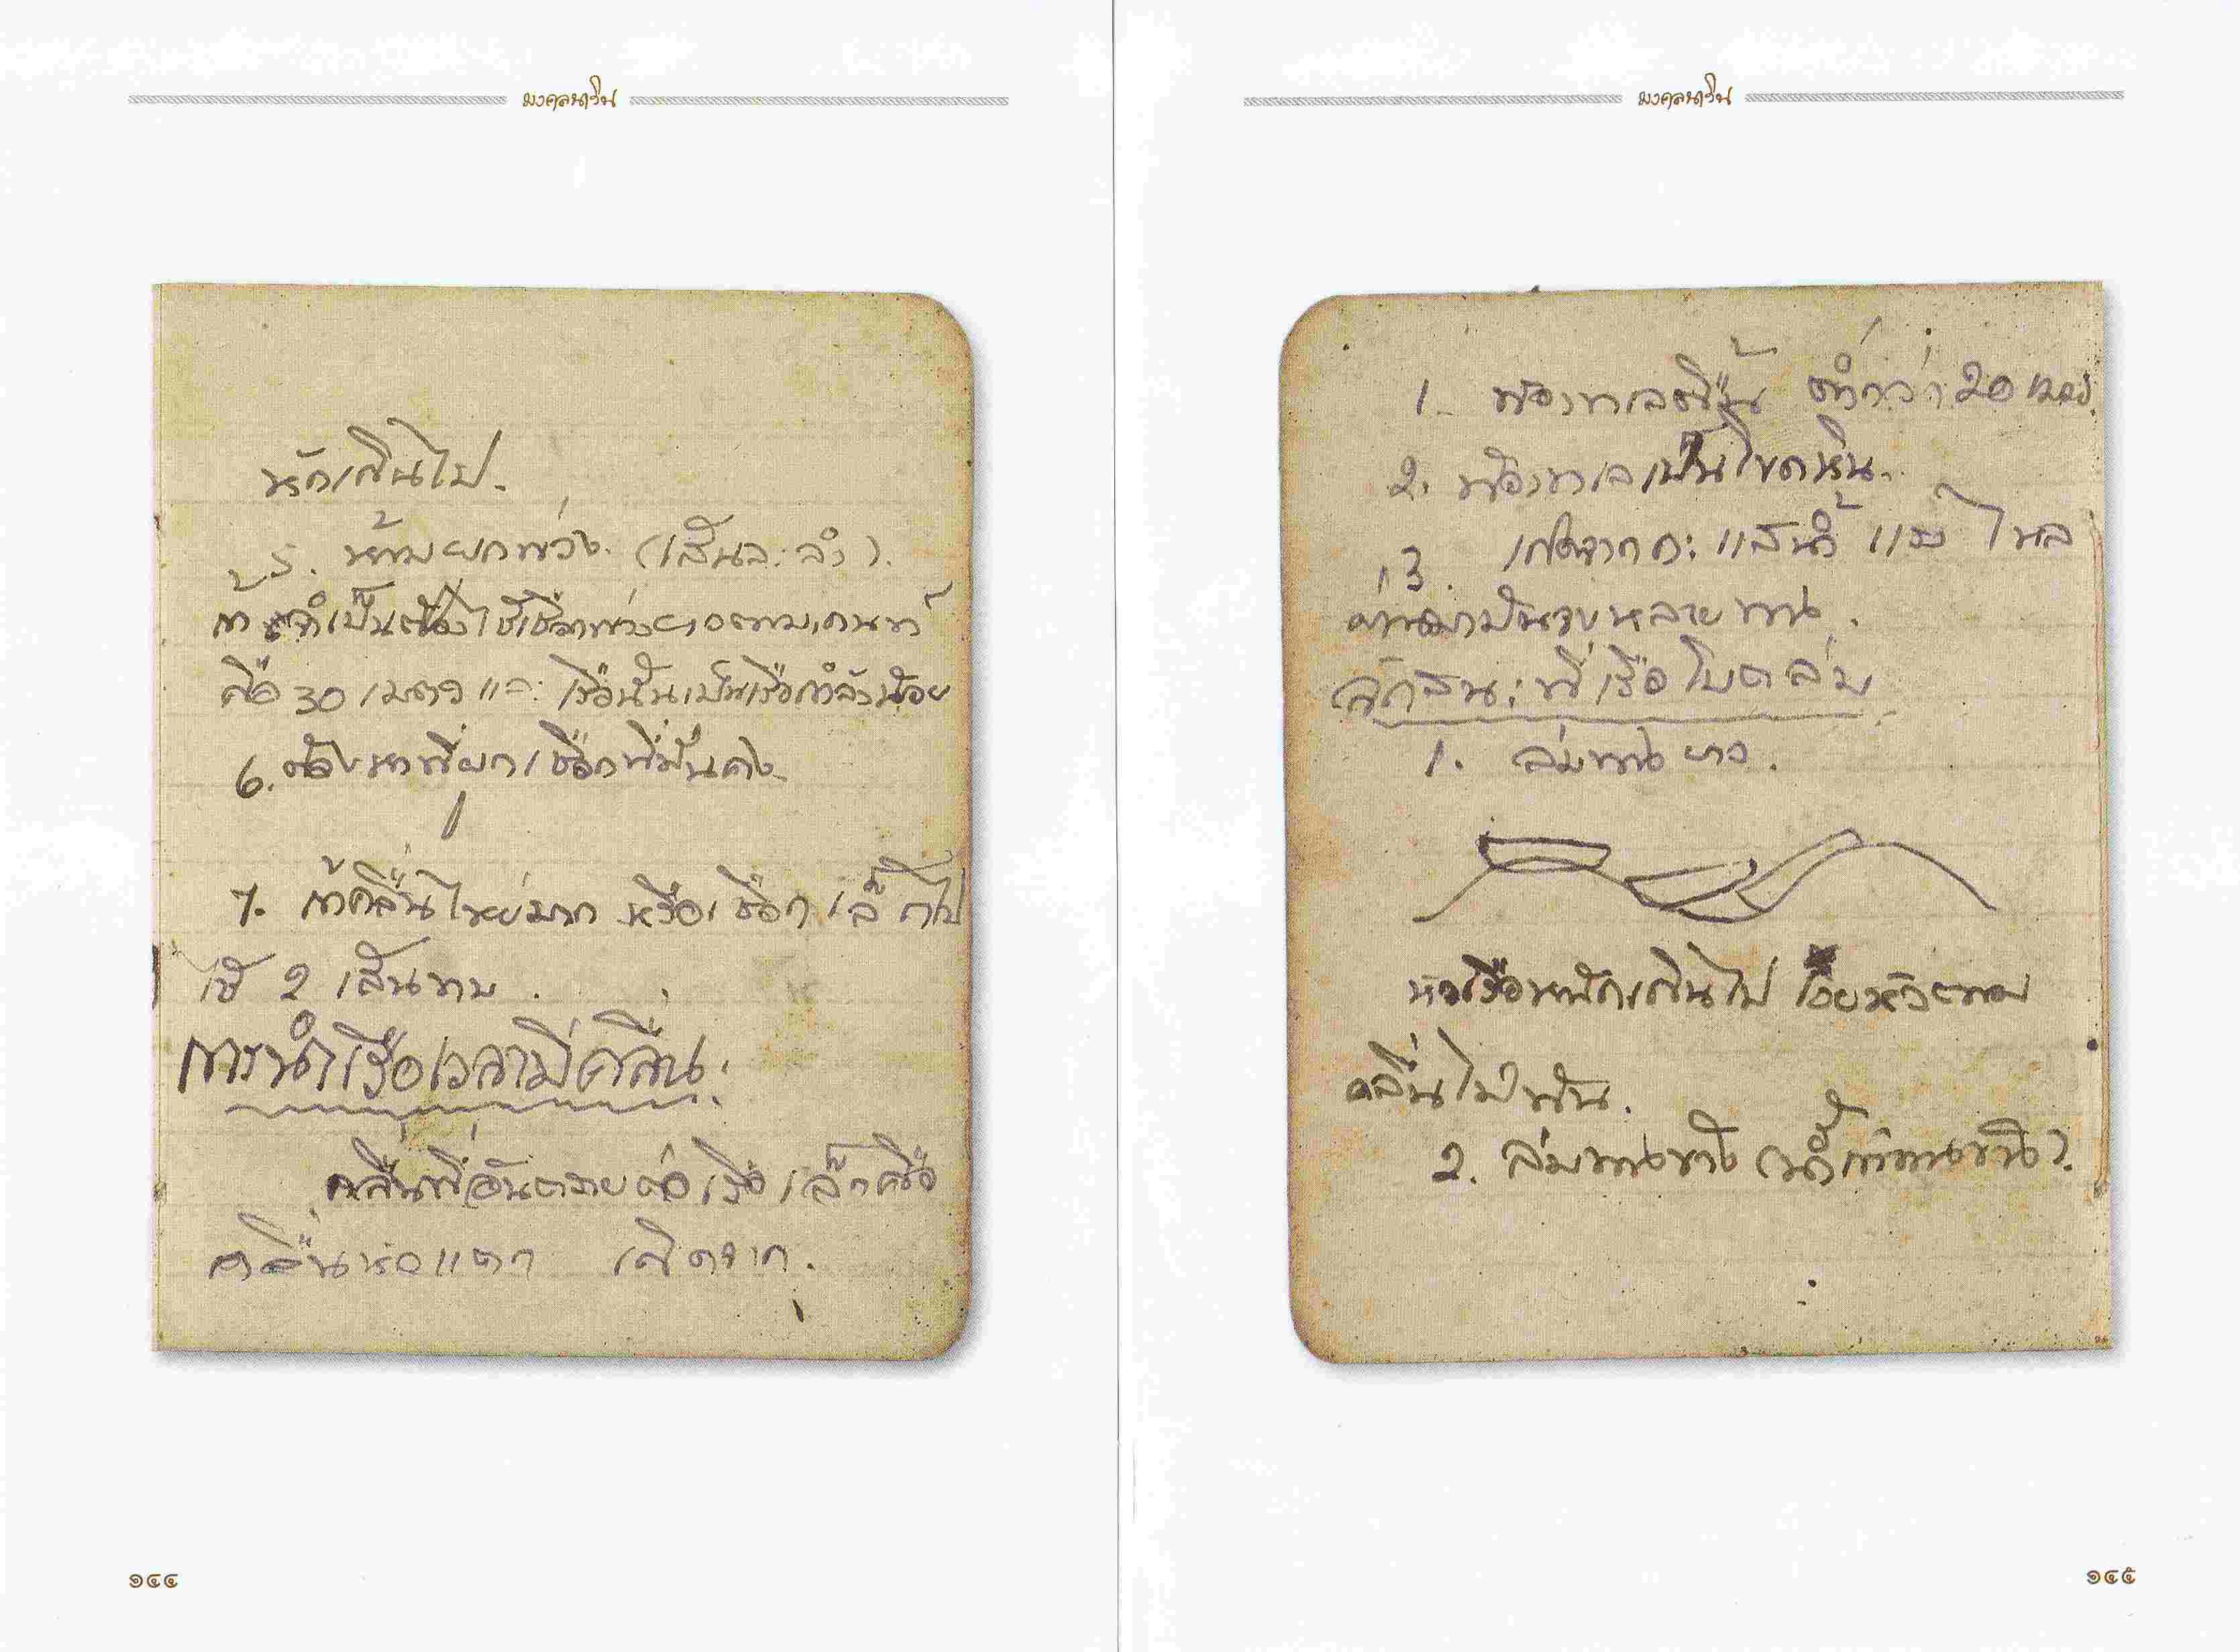 มงคลนาวิน
หักเกินไป.
5. ห้ามผูกพ่วง (เส้นละลำ).
ถ้าจำเป็นต้องใช้เชือกพ่วงยาวตามเกณฑ์
คือ 30 เมตร และเรือนั้นเป็นเรือกำลังน้อย
6. ต้องหาที่ผูกเชือกที่มั่นคง
7. ถ้าคลื่นใหญ่มาก หรือเชือกเล็กไป
ใช้ 2 เส้นทบ.
การนำเรือเวลามีคลื่น.
คลื่นที่อันตรายต่อเรือเล็กคือ
คลื่นหัวแตก เกิดจาก.
๑๔๔
มงคลนาวิน
1. ท้องทะเลตื้น ต่ำกว่า 20 เมตร.
2. ท้องทะเลเป็นโขดหิน.
3. เกิดจากกระแสน้ำแรง ไหล
ผ่าน
ลักสนะที่เรือโบตล่ม
1. ล่มทางยาว.
หัวเรือหนักเกินไป เงยหัวตาม
คลื่นไม่ทัน.
2. ล่มทางขวาง (น้ำเข้าทางข้าง).
๑๔๕